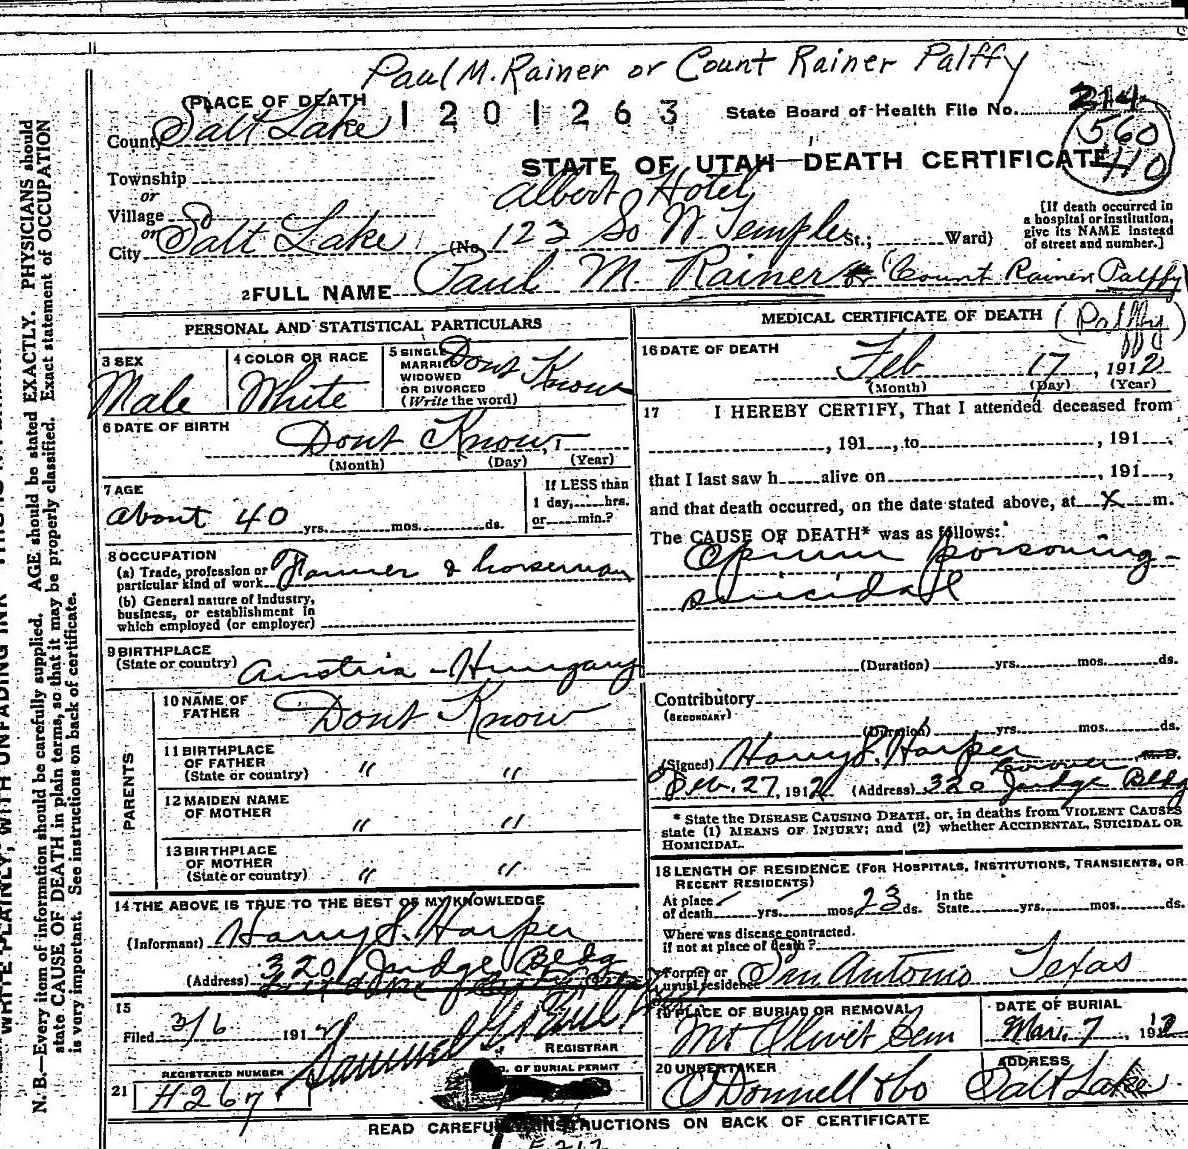 Paul M. Rainer or Count Rainer Palffy
PLACE OF DEATH
1201263
State Board of Health File No. 214
560
110
County Salt Lake
STATE OF UTAH—DEATH CERTIFICATE
Township
or
Albert Hotel
Village
or
City Salt Lake (No. 123 So W. Temple St.; Ward)
[If death occurred in
a hospital or institution,
give its NAME instead
of street and number.]
2 FULL NAME Paul M. Rainer or (Count Rainer Palffy)
PERSONAL AND STATISTICAL PARTICULARS
3 SEX
Male
4 COLOR OR RACE
White
5 SINGLE
MARRIED
WIDOWED
OR DIVORCED
(Write the word)
Dont Know
6 DATE OF BIRTH
Dont Know, 1
(Month) (Day) (Year)
7 AGE
about 40 yrs. mos. ds.
If LESS than
1 day, hrs.
or min.?
8 OCCUPATION
(a) Trade, profession or
particular kind of work Farmer & horseman
(b) General nature of industry,
business, or establishment in
which employed (or employer)
9 BIRTHPLACE
(State or country) Austria - Hungary
PARENTS
10 NAME OF
FATHER Dont Know
11 BIRTHPLACE
OF FATHER
(State or country) " "
12 MAIDEN NAME
OF MOTHER " "
13 BIRTHPLACE
OF MOTHER
(State or country) " "
14 THE ABOVE IS TRUE TO THE BEST OF MY KNOWLEDGE
(Informant) Harry S. Harper
(Address) 320 Judge Bldg
15
Filed 3/6 1912
Samuel G.
REGISTRAR
REGISTERED NUMBER
OF BURIAL PERMIT
21 H267
MEDICAL CERTIFICATE OF DEATH (Palffy)
16 DATE OF DEATH
Feb 17, 1912
(Month) (Day) (Year)
17 I HEREBY CERTIFY, That I attended deceased from
, 191 , to , 191 ,
that I last saw h alive on , 191 ,
and that death occurred, on the date stated above, at X m.
The CAUSE OF DEATH* was as follows:
Opium poisoning -
suicidal
(Duration) yrs. mos. ds.
Contributory
(SECONDARY)
(Duration) yrs. mos. ds.
(Signed) Harry S. Harper M. D.
Feb. 27, 1912 (Address) 320 Judge Bldg
* State the DISEASE CAUSING DEATH, or, in deaths from VIOLENT CAUSES
state (1) MEANS OF INJURY; and (2) whether ACCIDENTAL, SUICIDAL OR
HOMICIDAL.
18 LENGTH OF RESIDENCE (FOR HOSPITALS, INSTITUTIONS, TRANSIENTS, OR
RECENT RESIDENTS)
At place
of death yrs. mos. 23 ds.
In the
State yrs. mos. ds.
Where was disease contracted.
if not at place of death?
Former or
usual residence San Antonio Texas
19 PLACE OF BURIAL OR REMOVAL
Mt Olivet Cem
DATE OF BURIAL
Mar. 7, 1912
20 UNDERTAKER
O'Donnell & Co
ADDRESS
Salt Lake
READ CAREFULLY INSTRUCTIONS ON BACK OF CERTIFICATE
WRITE PLAINLY, WITH UNFADING INK
N. B.—Every item of information should be carefully supplied. AGE should be stated EXACTLY. PHYSICIANS should
state CAUSE OF DEATH in plain terms, so that it may be properly classified. Exact statement of OCCUPATION
is very important. See instructions on back of certificate.